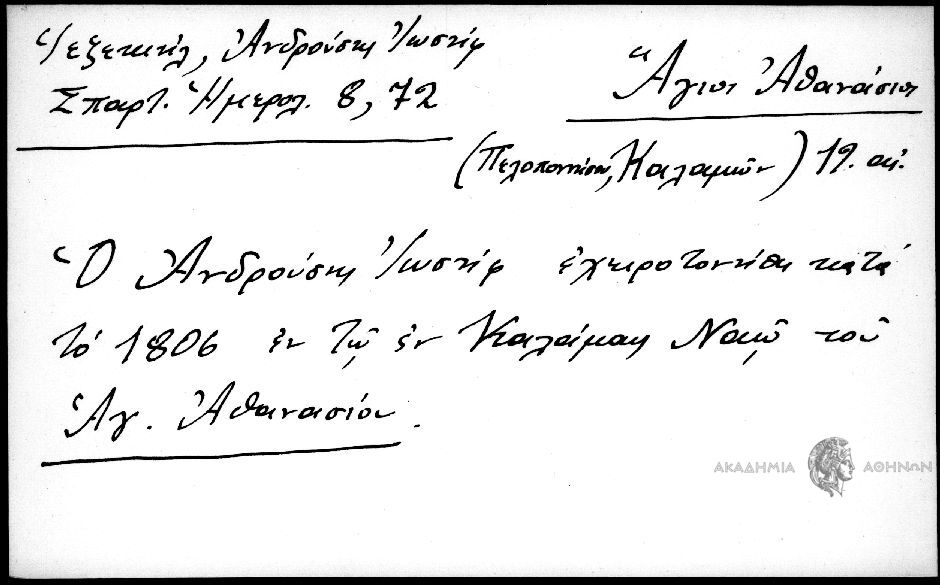 Ἱεζεκιήλ, Ἀνδρούσης Ἰωσήφ
Σπαρτ. Ἡμερολ. 8, 72
Ἅγιος Ἀθανάσιος
(Πελοπόννησου, Καλαμῶν) 19. αἰ.
Ὁ Ἀνδρούσης Ἰωσήφ ἐχειροτονήθη κατά
τό 1806 ἐν τῷ ἐν Καλάμαις Ναῷ τοῦ
Ἁγ. Ἀθανασίου.
ΑΚΑΔΗΜΙΑ ΑΘΗΝΩΝ